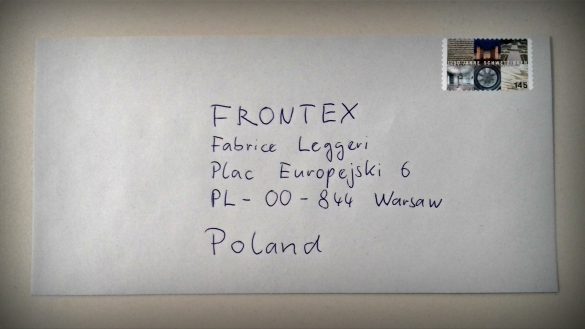 1250 JAHRE SCHWETZINGEN
145
FRONTEX
Fabrice Leggeri
Plac Europejski 6
PL - 00 - 844 Warsaw
Poland